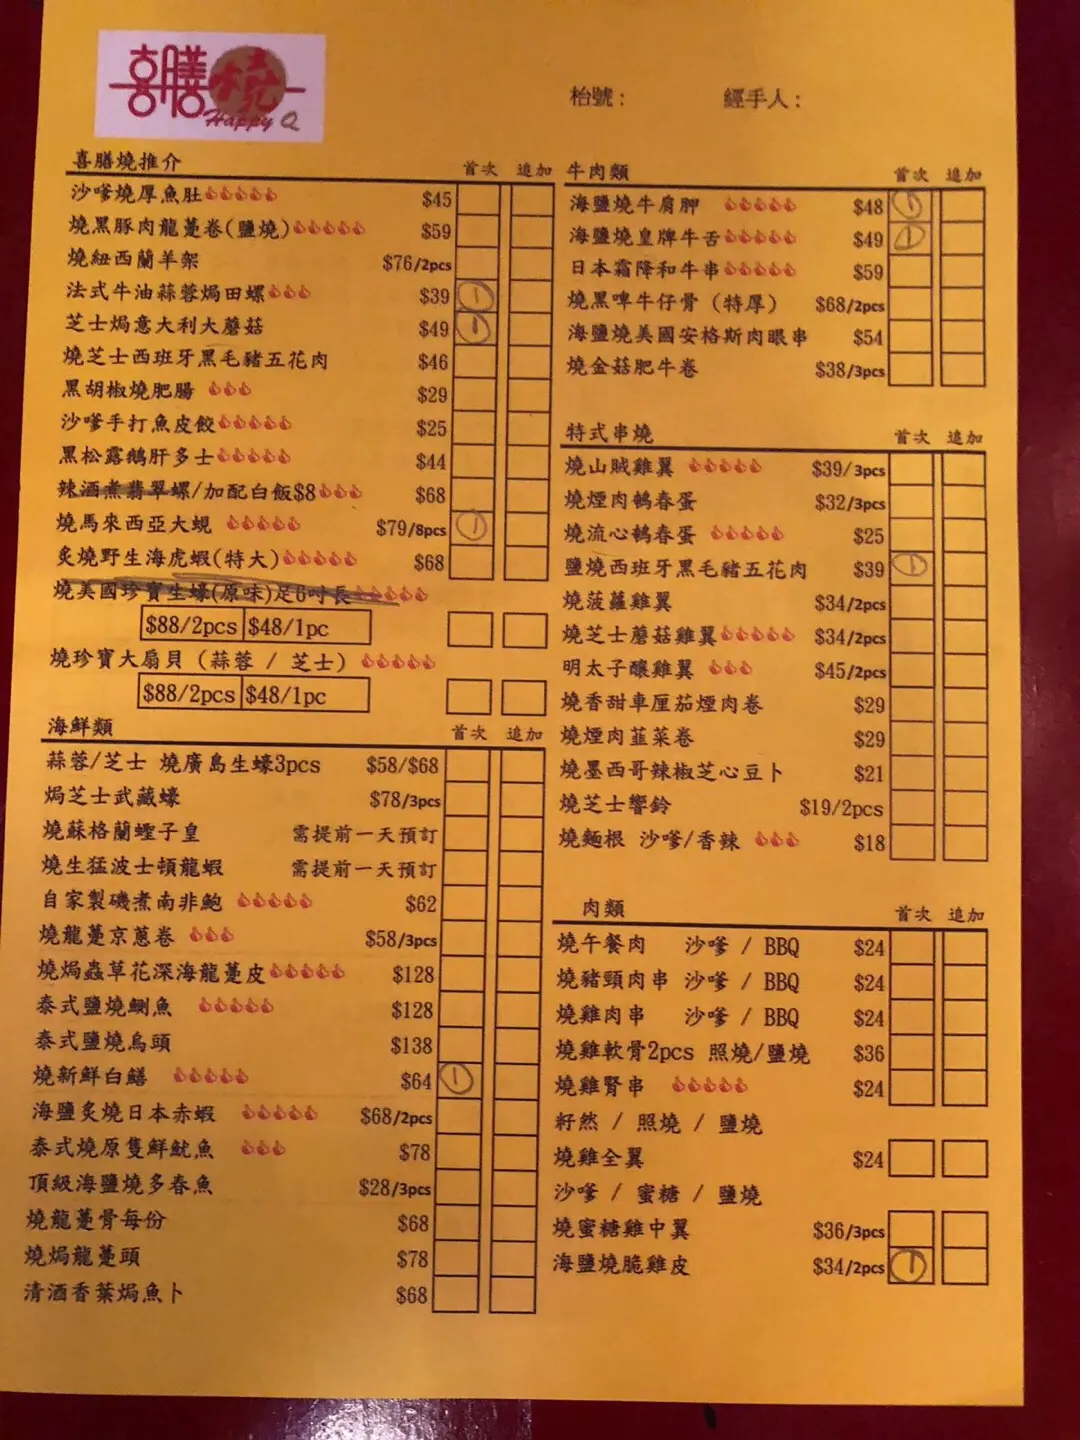 喜膳燒
Happy Q
枱號：
經手人：
喜膳燒推介 首次 追加
沙嗲燒厚魚肚 $45
燒黑豚肉龍躉卷(鹽燒) $59
燒紐西蘭羊架 $76/2pcs
法式牛油蒜蓉焗田螺 $39 1
芝士焗意大利大蘑菇 $49 1
燒芝士西班牙黑毛豬五花肉 $46
黑胡椒燒肥腸 $29
沙嗲手打魚皮餃 $25
黑松露鵝肝多士 $44
辣酒煮翡翠螺/加配白飯$8 $68
燒馬來西亞大蜆 $79/8pcs 1
炙燒野生海虎蝦(特大) $68
燒美國珍寶生蠔(原味)足6吋長
$88/2pcs $48/1pc
燒珍寶大扇貝（蒜蓉 / 芝士）
$88/2pcs $48/1pc
海鮮類 首次 追加
蒜蓉/芝士 燒廣島生蠔3pcs $58/$68
焗芝士武藏蠔 $78/3pcs
燒蘇格蘭蟶子皇 需提前一天預訂
燒生猛波士頓龍蝦 需提前一天預訂
自家製磯煮南非鮑 $62
燒龍躉京蔥卷 $58/3pcs
燒焗蟲草花深海龍躉皮 $128
泰式鹽燒鰂魚 $128
泰式鹽燒烏頭 $138
燒新鮮白鱔 $64 1
海鹽炙燒日本赤蝦 $68/2pcs
泰式燒原隻鮮魷魚 $78
頂級海鹽燒多春魚 $28/3pcs
燒龍躉骨每份 $68
燒焗龍躉頭 $78
清酒香葉焗魚卜 $68
牛肉類 首次 追加
海鹽燒牛肩胛 $48 1
海鹽燒皇牌牛舌 $49 1
日本霜降和牛串 $59
燒黑啤牛仔骨（特厚） $68/2pcs
海鹽燒美國安格斯肉眼串 $54
燒金菇肥牛卷 $38/3pcs
特式串燒 首次 追加
燒山賊雞翼 $39/3pcs
燒煙肉鵪春蛋 $32/3pcs
燒流心鵪春蛋 $25
鹽燒西班牙黑毛豬五花肉 $39 1
燒菠蘿雞翼 $34/2pcs
燒芝士蘑菇雞翼 $34/2pcs
明太子釀雞翼 $45/2pcs
燒香甜車厘茄煙肉卷 $29
燒煙肉韮菜卷 $29
燒墨西哥辣椒芝心豆卜 $21
燒芝士響鈴 $19/2pcs
燒麵根 沙嗲/香辣 $18
肉類 首次 追加
燒午餐肉 沙嗲 / BBQ $24
燒豬頸肉串 沙嗲 / BBQ $24
燒雞肉串 沙嗲 / BBQ $24
燒雞軟骨2pcs 照燒/鹽燒 $36
燒雞腎串 $24
籽然 / 照燒 / 鹽燒
燒雞全翼 $24
沙嗲 / 蜜糖 / 鹽燒
燒蜜糖雞中翼 $36/3pcs
海鹽燒脆雞皮 $34/2pcs 1